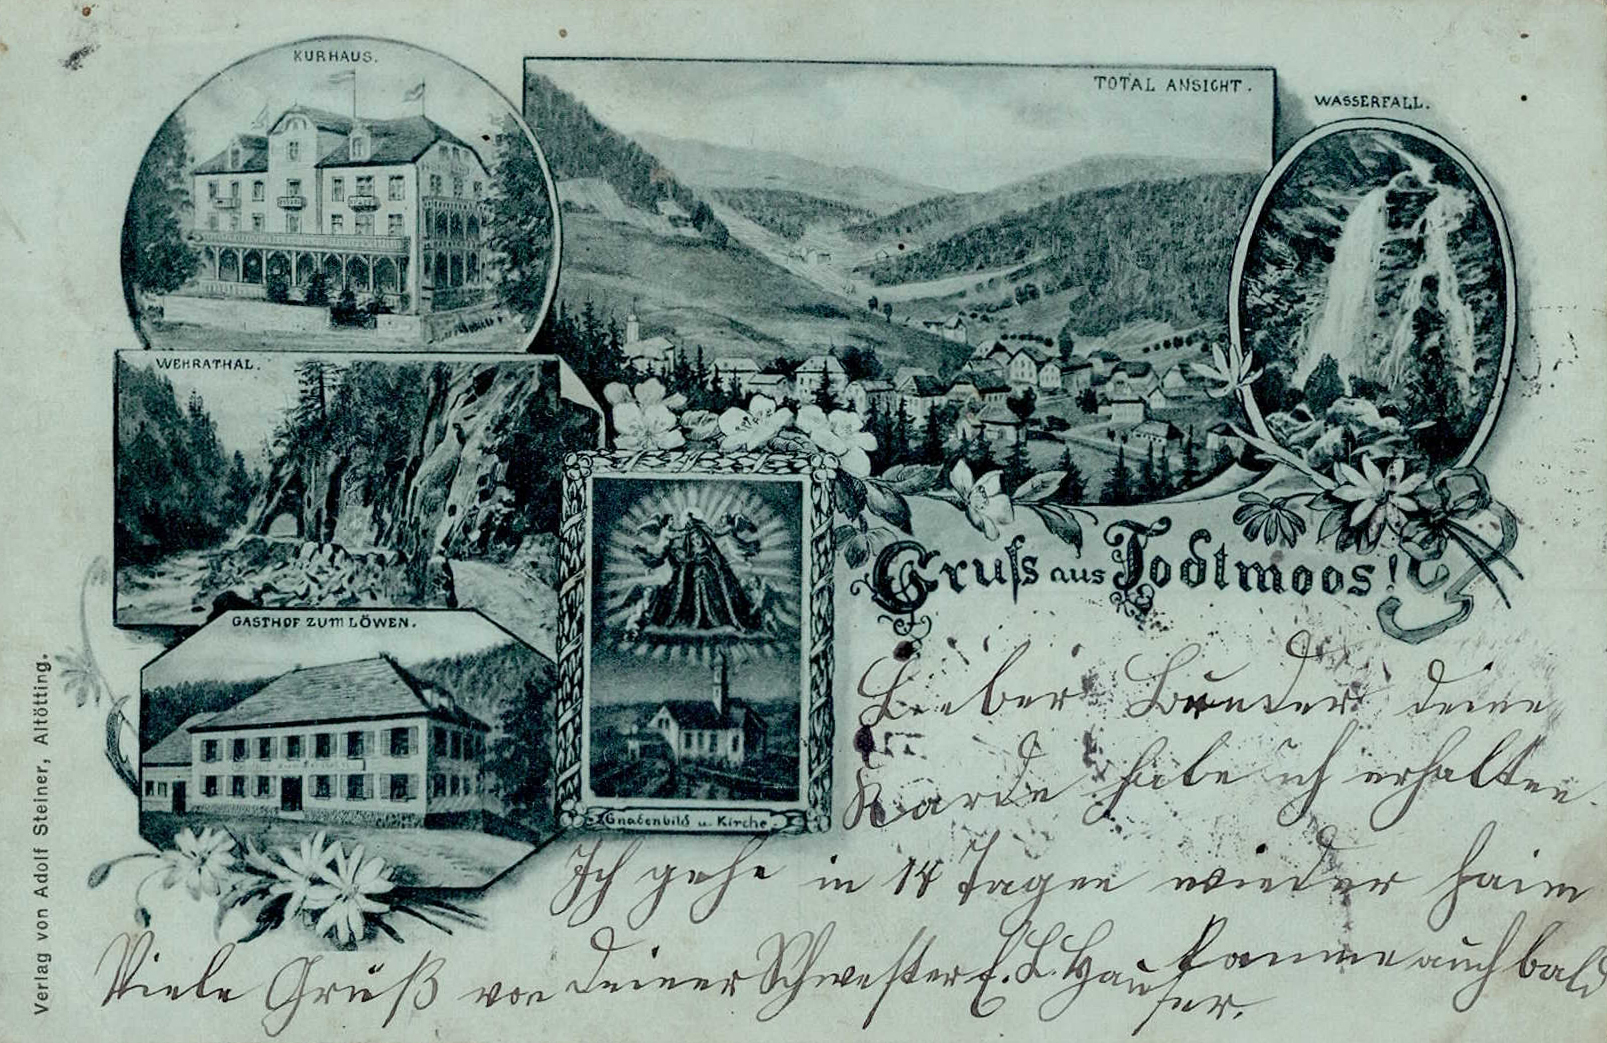 KURHAUS.
TOTAL ANSICHT.
WASSERFALL.
WEHRATHAL.
GASTHOF ZUM LÖWEN.
Gnadenbild u. Kirche.
Gruss aus Todtmoos!
Lieber Bruder deine
Karde habe ich erhalten.
Ich gehe in 14 Tagen wieder haim
Viele Grüß von deiner Schwester E. L. Hauser.
kome auch bald
Verlag von Adolf Steiner, Altötting.